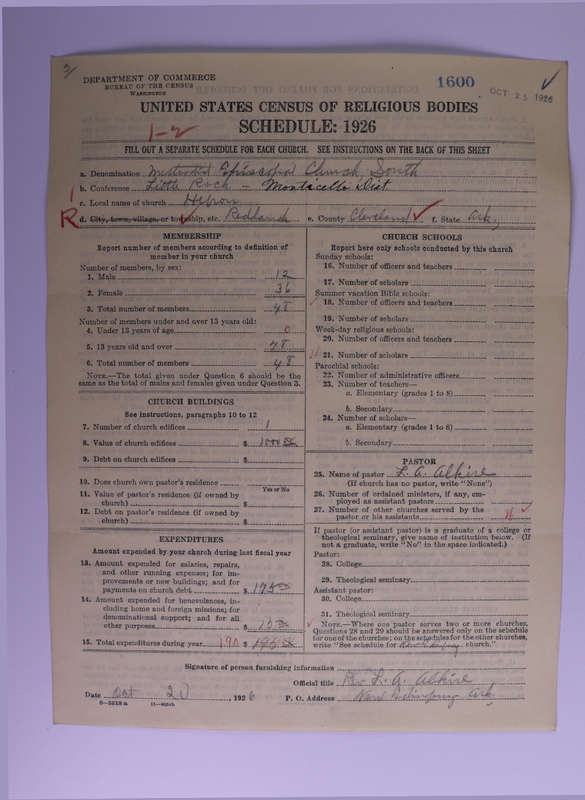 3/
DEPARTMENT OF COMMERCE
BUREAU OF THE CENSUS
WASHINGTON
1600
OCT 25 1926
UNITED STATES CENSUS OF RELIGIOUS BODIES
1-2
SCHEDULE: 1926
FILL OUT A SEPARATE SCHEDULE FOR EACH CHURCH. SEE INSTRUCTIONS ON THE BACK OF THIS SHEET
a. Denomination Methodist Episcopal Church, South
b. Conference Little Rock - Monticello Dist.
c. Local name of church Hebron
R d. City, town, village, or township, etc. Redland e. County Cleveland f. State Ark.
MEMBERSHIP
Report number of members according to definition of
member in your church
Number of members, by sex:
1. Male 12
2. Female 36
3. Total number of members 48
Number of members under and over 13 years old:
4. Under 13 years of age 0
5. 13 years old and over 48
6. Total number of members 48
NOTE.—The total given under Question 6 should be the
same as the total of males and females given under Question 3.
CHURCH BUILDINGS
See instructions, paragraphs 10 to 12
7. Number of church edifices 1
8. Value of church edifices $ 1000
9. Debt on church edifices $
10. Does church own pastor's residence
Yes or No
11. Value of pastor's residence (if owned by
church) $
12. Debt on pastor's residence (if owned by
church) $
EXPENDITURES
Amount expended by your church during last fiscal year
13. Amount expended for salaries, repairs,
and other running expenses; for im-
provements or new buildings; and for
payments on church debt $ 175
14. Amount expended for benevolences, in-
cluding home and foreign missions; for
denominational support; and for all
other purposes $ 15
15. Total expenditures during year 190 $
CHURCH SCHOOLS
Report here only schools conducted by this church
Sunday schools:
16. Number of officers and teachers
17. Number of scholars
Summer vacation Bible schools:
18. Number of officers and teachers
19. Number of scholars
Week-day religious schools:
20. Number of officers and teachers
21. Number of scholars
Parochial schools:
22. Number of administrative officers
23. Number of teachers—
a. Elementary (grades 1 to 8)
b. Secondary
24. Number of scholars—
a. Elementary (grades 1 to 8)
b. Secondary
PASTOR
25. Name of pastor L. A. Alkire
(If church has no pastor, write "None")
26. Number of ordained ministers, if any, em-
ployed as assistant pastors
27. Number of other churches served by the
pastor or his assistants
If pastor (or assistant pastor) is a graduate of a college or
theological seminary, give name of institution below. (If
not a graduate, write "No" in the space indicated.)
Pastor:
28. College
29. Theological seminary
Assistant pastor:
30. College
31. Theological seminary
NOTE.—Where one pastor serves two or more churches,
Questions 28 and 29 should be answered only on the schedule
for one of the churches; on the schedules for the other churches,
write "See schedule for church."
Signature of person furnishing information
Official title Rev. L. A. Alkire
Date Oct 20, 1926 P. O. Address Ark.
8-5518 a